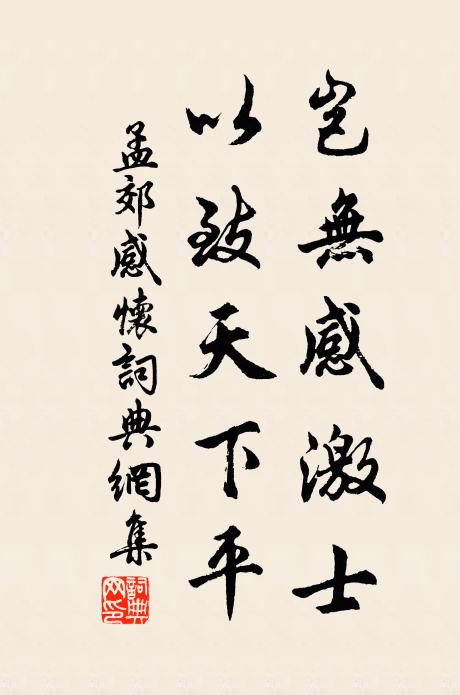 豈無感激士
以致天下平
孟郊感懷詞典網集
詞典網印